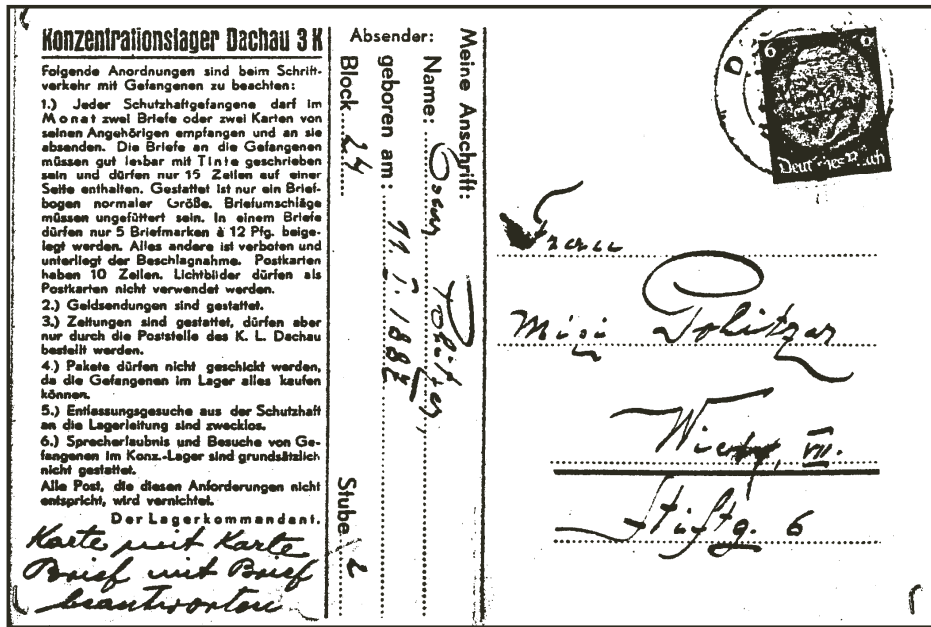 Konzentrationslager Dachau 3 K
Folgende Anordnungen sind beim Schrift-
verkehr mit Gefangenen zu beachten:
1.) Jeder Schutzhaftgefangene darf im
Monat zwei Briefe oder zwei Karten von
seinen Angehörigen empfangen und an sie
absenden. Die Briefe an die Gefangenen
müssen gut lesbar mit Tinte geschrieben
sein und dürfen nur 15 Zeilen auf einer
Seite enthalten. Gestattet ist nur ein Brief-
bogen normaler Größe. Briefumschläge
müssen ungefüttert sein. In einem Briefe
dürfen nur 5 Briefmarken à 12 Pfg. beige-
legt werden. Alles andere ist verboten und
unterliegt der Beschlagnahme. Postkarten
haben 10 Zeilen. Lichtbilder dürfen als
Postkarten nicht verwendet werden.
2.) Geldsendungen sind gestattet.
3.) Zeitungen sind gestattet, dürfen aber
nur durch die Poststelle des K. L. Dachau
bestellt werden.
4.) Pakete dürfen nicht geschickt werden,
da die Gefangenen im Lager alles kaufen
können.
5.) Entlassungsgesuche aus der Schutzhaft
an die Lagerleitung sind zwecklos.
6.) Sprecherlaubnis und Besuche von Ge-
fangenen im Konz.-Lager sind grundsätzlich
nicht gestattet.
Alle Post, die diesen Anforderungen nicht
entspricht, wird vernichtet.
Der Lagerkommandant.
Karte mit Karte
Brief mit Brief
beantworten
Meine Anschrift:
Absender:
Name: Oscar Politzer,
geboren am:
Block 24 Stube 2
6 6
Deutsches Reich
Mizi Politzer
Wien VII.
Stiftg. 6